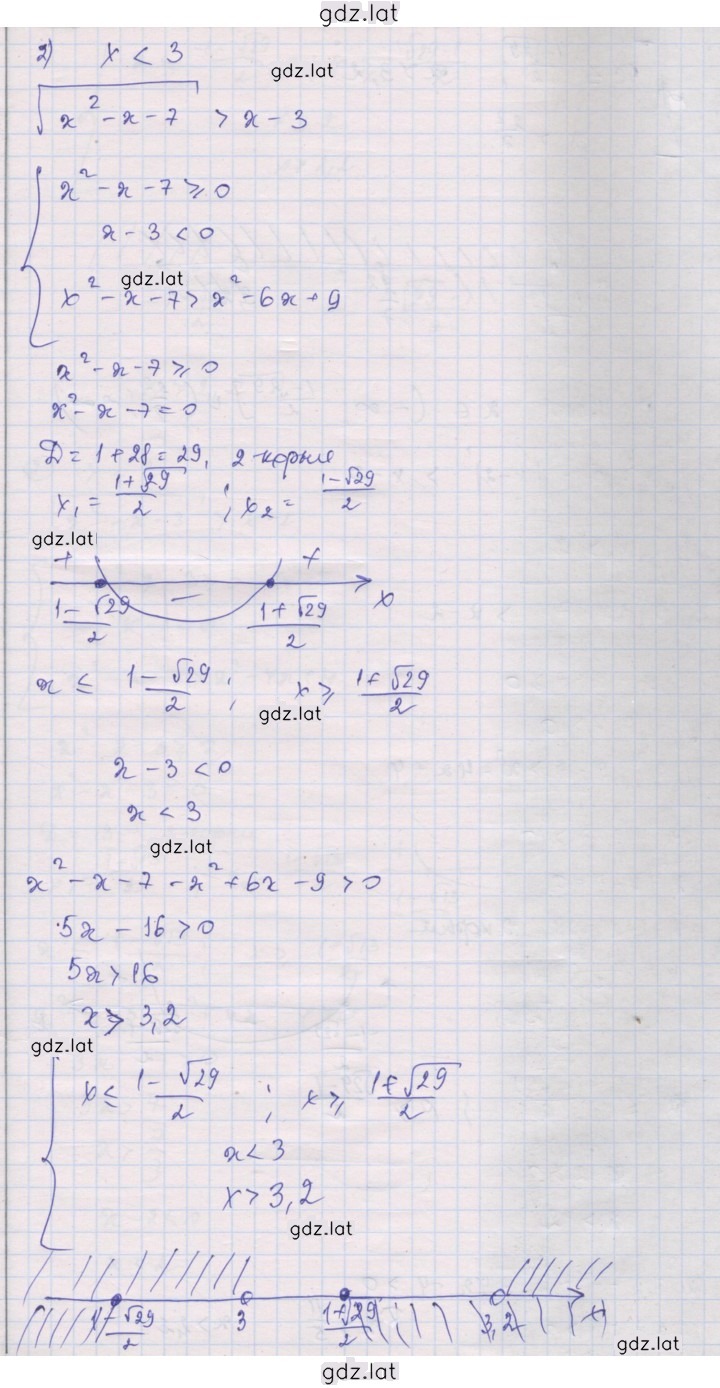 gdz.lat
2) x < 3
gdz.lat
√x² - x - 7 > x - 3
x² - x - 7 ≥ 0
x - 3 < 0
gdz.lat
x² - x - 7 > x² - 6x + 9
x² - x - 7 ≥ 0
x² - x - 7 = 0
D = 1 + 28 = 29, 2 корня
x₁ = (1+√29)/2 ; x₂ = (1-√29)/2
gdz.lat
+ - + x
(1-√29)/2 (1+√29)/2
x ≤ (1-√29)/2 ; x ≥ (1+√29)/2
gdz.lat
x - 3 < 0
x < 3
gdz.lat
x² - x - 7 - x² + 6x - 9 > 0
5x - 16 > 0
5x > 16
x > 3,2
gdz.lat
x ≤ (1-√29)/2 ; x ≥ (1+√29)/2
x < 3
x > 3,2
gdz.lat
(1-√29)/2 3 (1+√29)/2 3,2 x
gdz.lat
gdz.lat